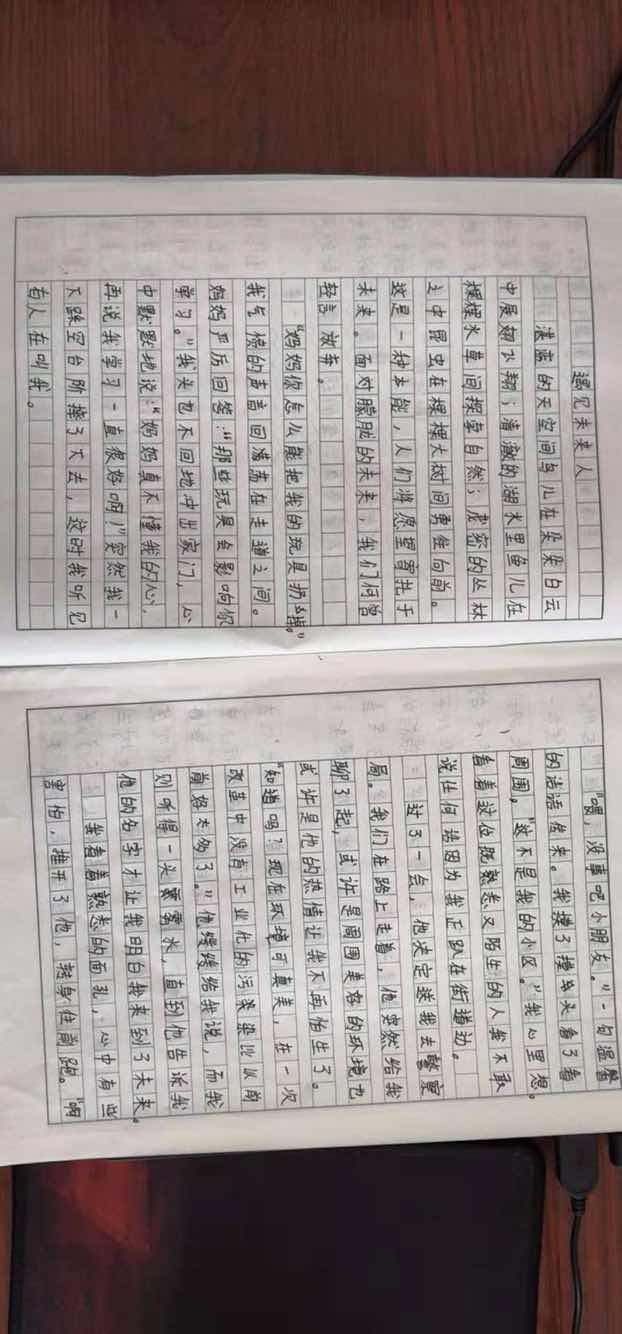 遇见未来人
湛蓝的天空间鸟儿在朵朵白云
中展翅飞翔；清澈的湖水里鱼儿在
棵棵水草间探索自然；茂密的丛林
之中昆虫在棵棵大树间勇往向前。
这是一种本能，人们将愿望寄托于
未来。面对朦胧的未来，我们何曾
轻言放弃。
“妈妈你怎么能把我的玩具扔掉。”
我气愤的声音回荡荡在走道之间。
妈妈严厉回答：“那些玩具会影响你
学习。”我头也不回地冲出家门，心
中默默地说：“妈妈真不懂我的心，
再说我学习一直很好啊！”突然我一
下跌空台阶摔了下去，这时我听见
有人在叫我。
“喂，没事吧小朋友。”一句温馨
的话语传来。我摸了摸头看了看
周围。“这不是我的小区。”我心里想。
看着这位既熟悉又陌生的人我不敢
说任何话因为我正趴在街道边。
过了一会，他决定送我去警察
局。我们在路上走着，他突然给我
聊了起，或许是周围美好的环境也
或许是他的热情让我不再怕生了。
“知道吗？现在环境可真美，在一次
改革中没有工业化的污染染以前
前好太多了。”他缓缓给我说，而我
则听得一头雾雾水，直到他告诉我
他的名字才让我明白我来到了未来。
我看着熟悉的面孔，心中有些
害怕，推开了他，转身往前跑。“啊